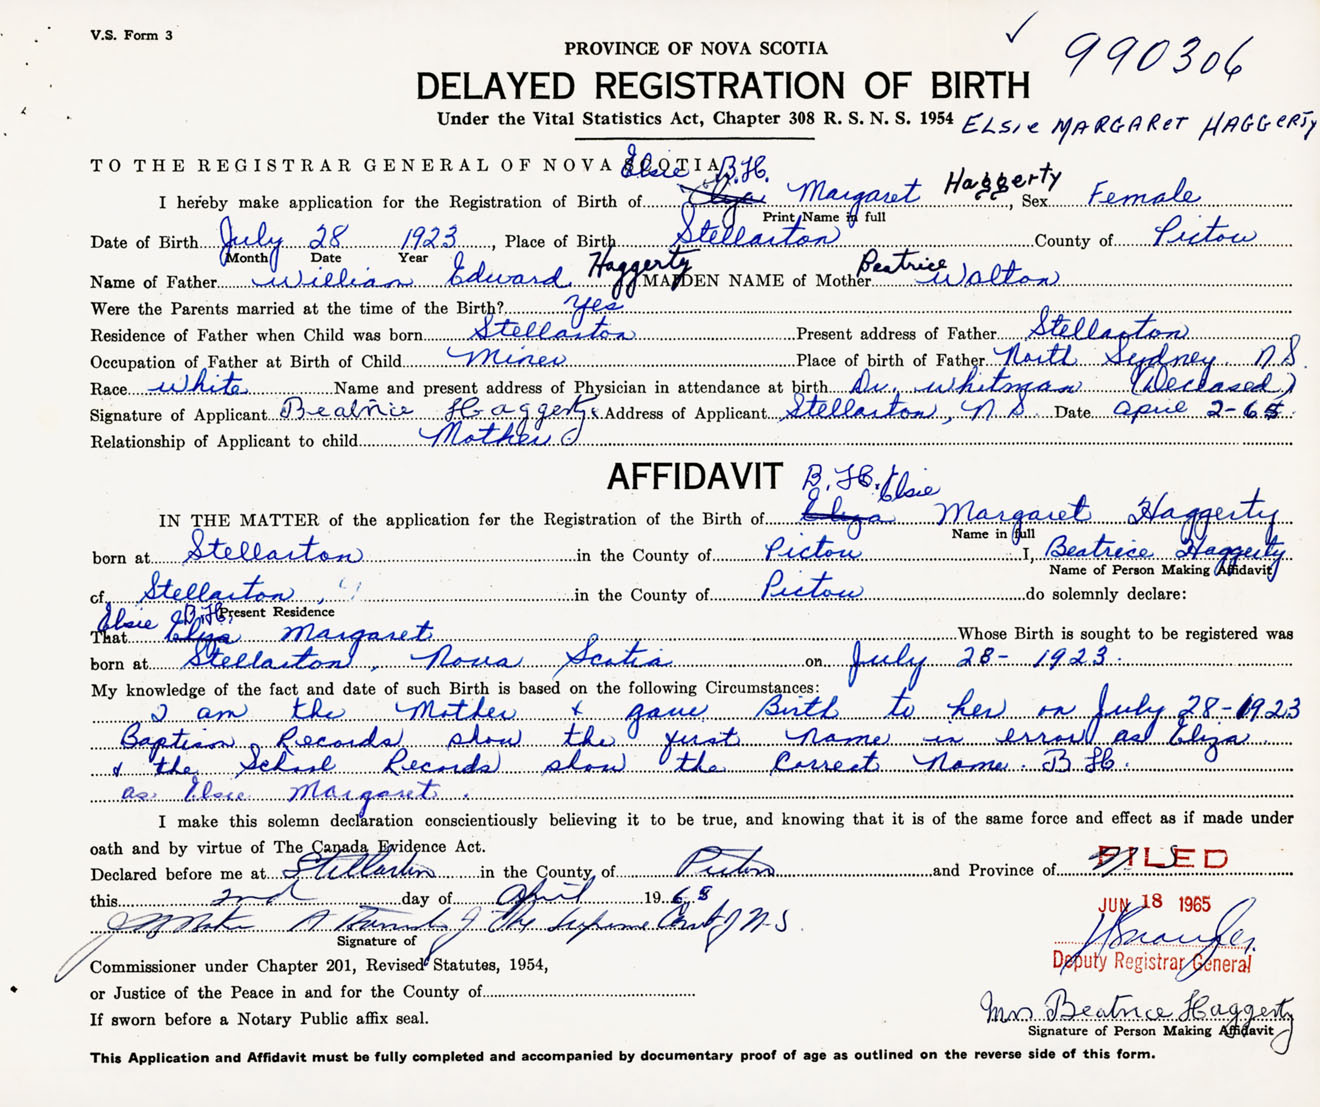 V.S. Form 3
PROVINCE OF NOVA SCOTIA
990306
DELAYED REGISTRATION OF BIRTH
Under the Vital Statistics Act, Chapter 308 R. S. N. S. 1954
ELSIE MARGARET HAGGERTY
TO THE REGISTRAR GENERAL OF NOVA SCOTIA
Elsie B.H.
I hereby make application for the Registration of Birth of Eliza Margaret Haggerty, Sex Female
Print Name in full
Date of Birth July 28 1923, Place of Birth Stellarton County of Pictou
Month Date Year
Name of Father William Edward Haggerty MAIDEN NAME of Mother Beatrice Walton
Were the Parents married at the time of the Birth? Yes
Residence of Father when Child was born Stellarton Present address of Father Stellarton
Occupation of Father at Birth of Child Miner Place of birth of Father North Sydney N.S.
Race White Name and present address of Physician in attendance at birth Dr. Whitman (Deceased)
Signature of Applicant Beatrice Haggerty Address of Applicant Stellarton, N.S. Date April 2-65
Relationship of Applicant to child Mother
AFFIDAVIT
B.H. Elsie
IN THE MATTER of the application for the Registration of the Birth of Eliza Margaret Haggerty
Name in full
born at Stellarton in the County of Pictou I, Beatrice Haggerty
Name of Person Making Affidavit
of Stellarton, in the County of Pictou do solemnly declare:
Present Residence
Elsie B.H.
That Eliza Margaret Whose Birth is sought to be registered was
born at Stellarton, Nova Scotia on July 28- 1923.
My knowledge of the fact and date of such Birth is based on the following Circumstances:
I am the Mother & gave Birth to her on July 28-1923
Baptism Records show the first name in error as Eliza
& the School Records show the Correct Name. B.H.
as Elsie Margaret.
I make this solemn declaration conscientiously believing it to be true, and knowing that it is of the same force and effect as if made under
oath and by virtue of The Canada Evidence Act.
Declared before me at Stellarton in the County of Pictou and Province of N S
FILED
this 2nd day of April 1965
JUN 18 1965
A Barrister of The Supreme Court of N.S.
Signature of
Deputy Registrar General
Commissioner under Chapter 201, Revised Statutes, 1954,
or Justice of the Peace in and for the County of
Mrs Beatrice Haggerty
If sworn before a Notary Public affix seal.
Signature of Person Making Affidavit
This Application and Affidavit must be fully completed and accompanied by documentary proof of age as outlined on the reverse side of this form.